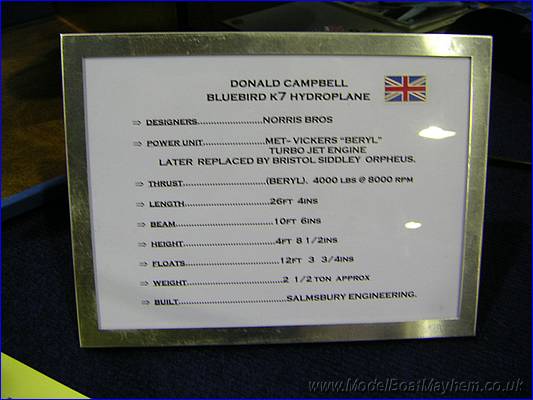 DONALD CAMPBELL
BLUEBIRD K7 HYDROPLANE
⇒ DESIGNERS.........................NORRIS BROS
⇒ POWER UNIT.......................MET- VICKERS "BERYL"
TURBO JET ENGINE
LATER REPLACED BY BRISTOL SIDDLEY ORPHEUS.
⇒ THRUST..............................(BERYL). 4000 LBS @ 8000 RPM
⇒ LENGTH..............................26FT 4INS
⇒ BEAM.................................10FT 6INS
⇒ HEIGHT...............................4FT 8 1/2INS
⇒ FLOATS...............................12FT 3 3/4INS
⇒ WEIGHT...............................2 1/2 TON APPROX
⇒ BUILT.................................SALMSBURY ENGINEERING.
www.ModelBoatMayhem.co.uk